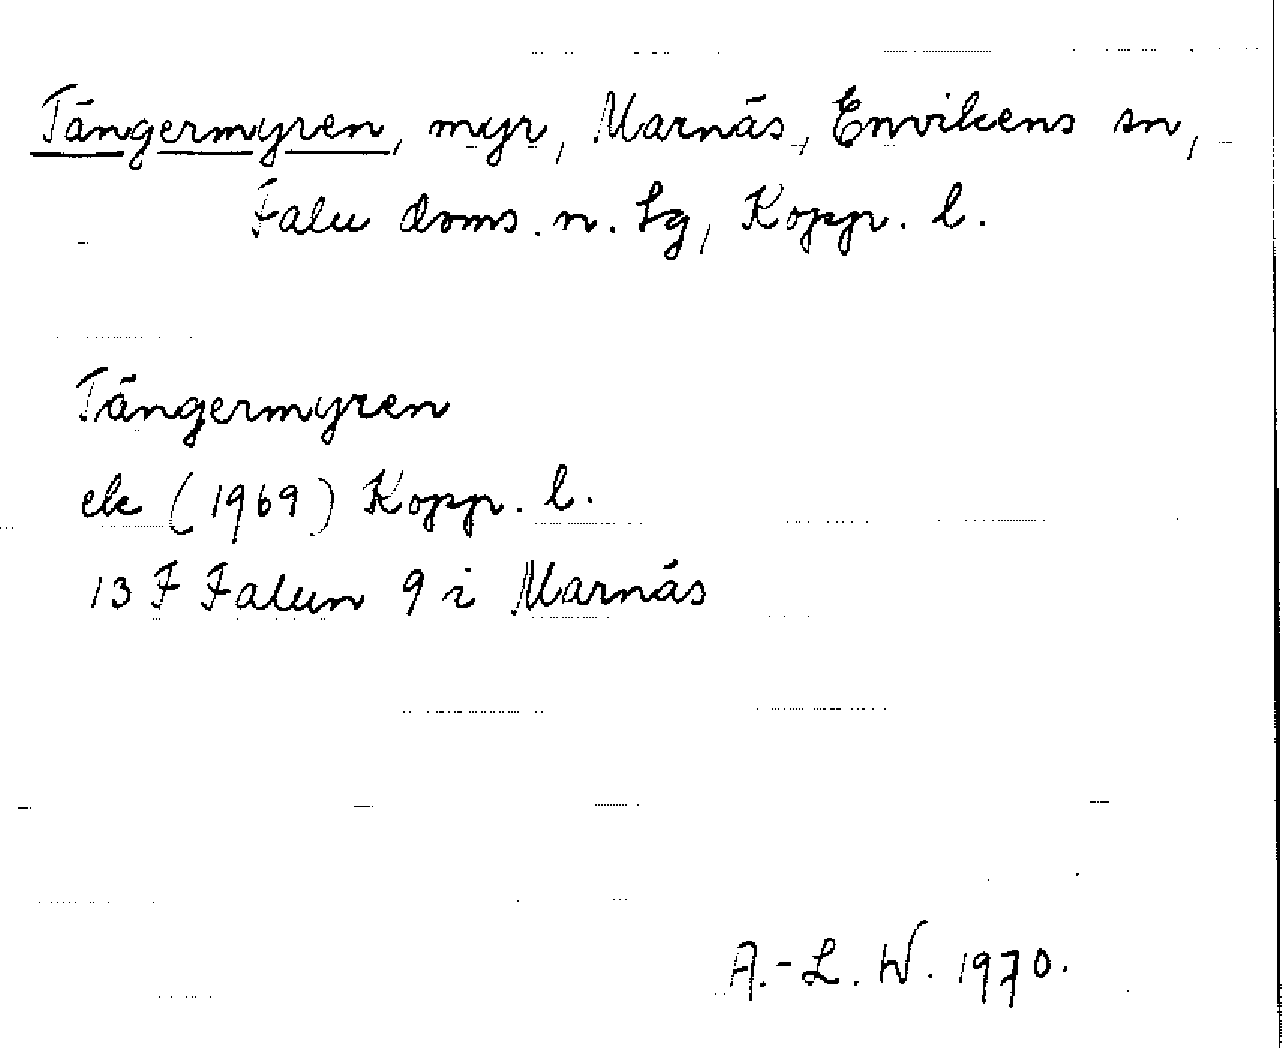 Tängermyren, myr, Marnäs, Envikens sn,
Falu doms. n. tg, Kopp. l.
Tängermyren
ek (1969) Kopp. l.
13 F Falun 9 i Marnäs
A.-L. W. 1970.